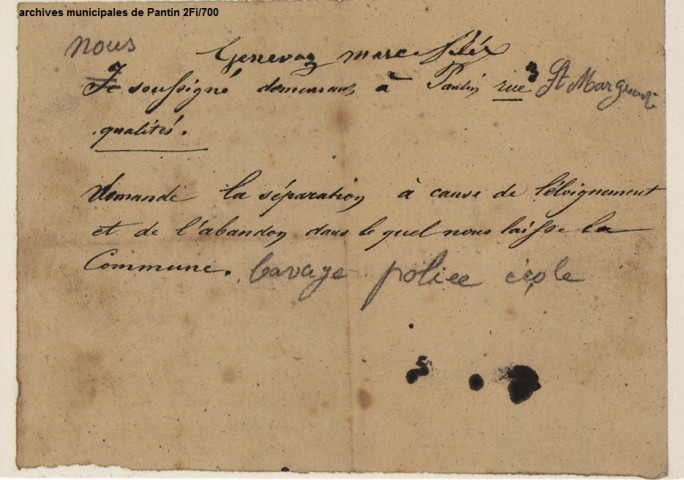 archives municipales de Pantin 2Fi/700
nous
Genevoz marc félix
Je soussigné demeurant à Pantin rue 3 St Marguerite
qualités.
demande la séparation à cause de l'éloignement
et de l'abandon dans le quel nous laisse la
Commune. Lavage police école